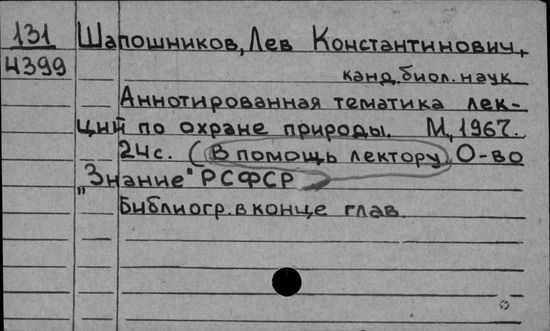 131
4399
Шапошников, Лев Константинович,
канд. биол. наук
Аннотированная тематика лек-
ций по охране природы. М, 1967.
24с. (В помощь лектору. О-во
„Знание" РСФСР)
Библиогр. в конце глав.